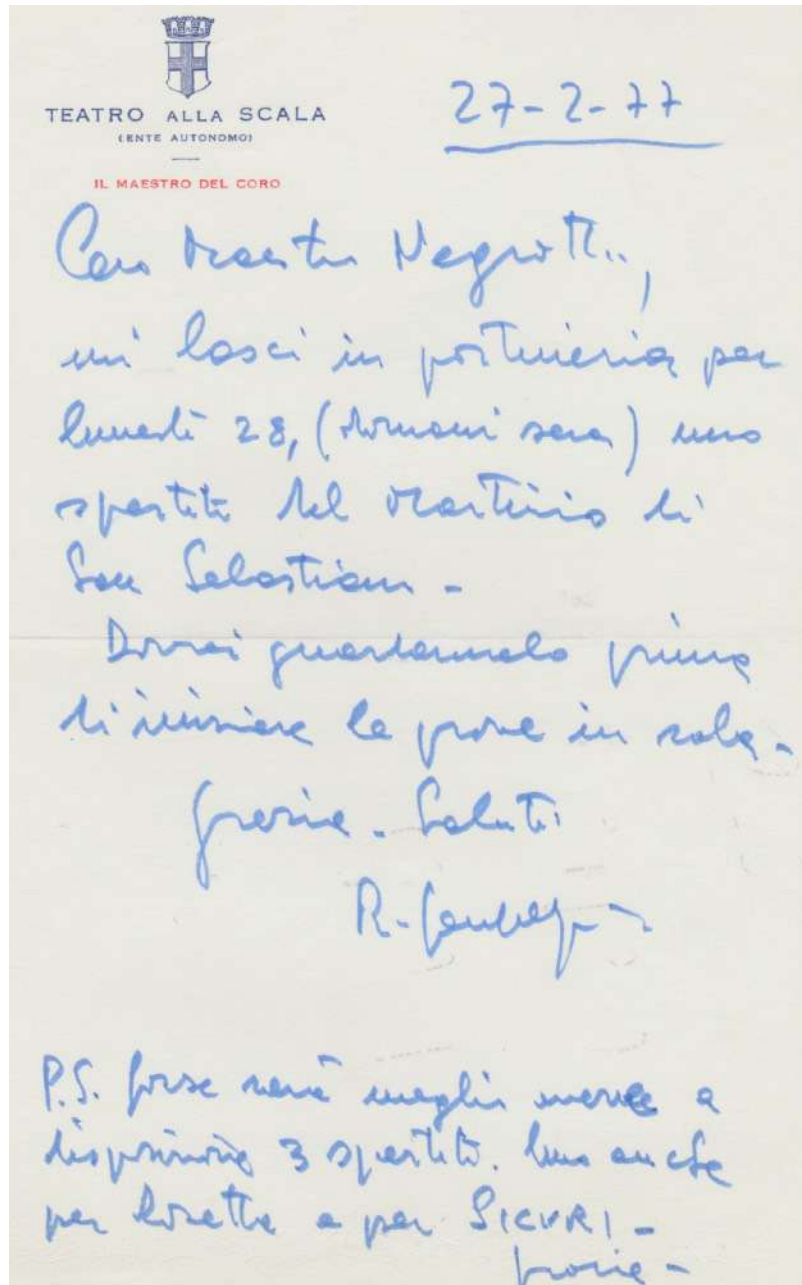 TEATRO ALLA SCALA
(ENTE AUTONOMO)
IL MAESTRO DEL CORO
27-2-77
Caro Maestro Negrotti,
mi lasci in portineria per
lunedì 28, (domani sera) uno
spartito del Martirio di
San Sebastiano -
Dovrei guardarmelo prima
di iniziare le prove in sala -
Grazie - Saluti
R.
P.S. forse sarà meglio avere a
disposizione 3 spartiti. Uno anche
per e per SICURI -
grazie -